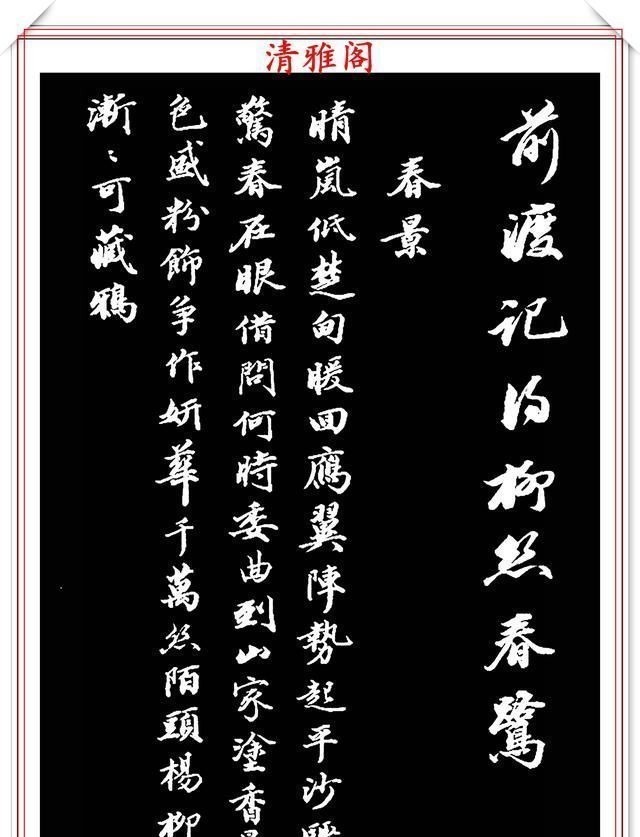 清雅阁
前渡記得柳絲春鷺
春景
晴嵐低楚甸暖回鴈翼陣勢起平沙
驚春在眼借問何時委曲到山家塗香
色盛粉飾爭作妍華千萬絲陌頭楊柳
漸々可藏鴉